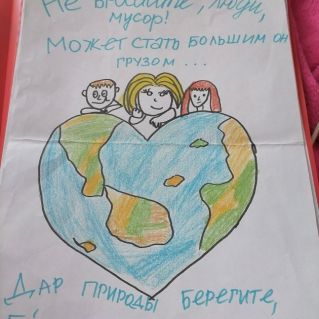 Не бросайте, люди,
мусор!
Может стать большим он
грузом ...
Дар природы берегите,